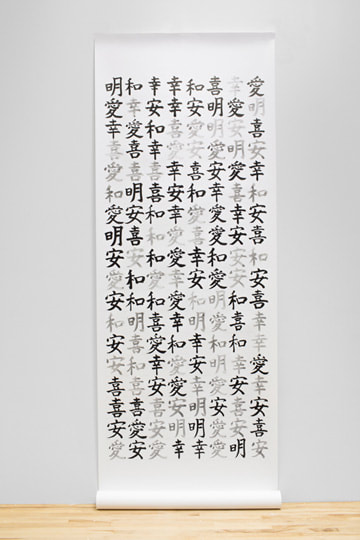 愛明喜安幸和安喜和安喜幸幸愛愛安喜愛
幸愛安明愛喜幸安安喜和喜和愛喜幸安明
喜明明喜安愛愛和愛喜明愛和明愛安愛愛
和安愛安喜和喜喜幸安喜明幸安幸明明幸
幸幸喜愛幸安幸愛喜愛愛幸和喜愛安明幸
幸安和幸喜愛愛和和幸愛喜愛幸安喜喜愛
和幸愛喜喜明安喜安和和明喜和幸安愛安
明愛幸喜愛和愛明安愛安和安安喜喜安愛